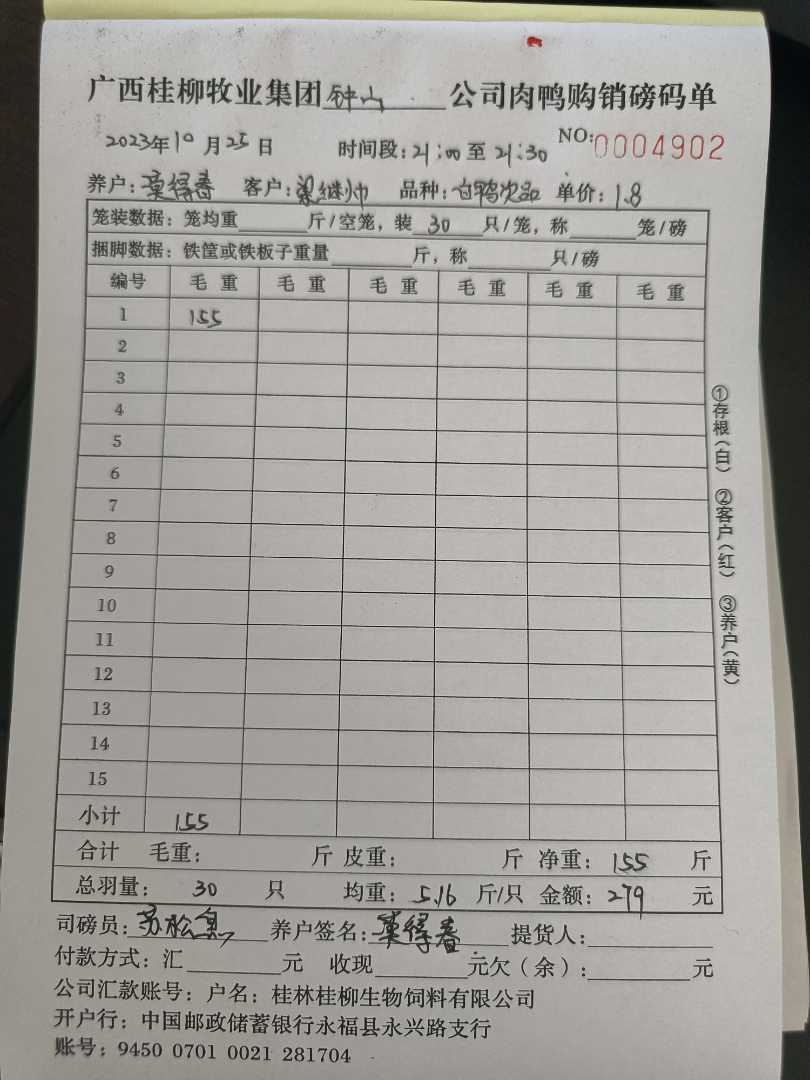 广西桂柳牧业集团钟山公司肉鸭购销磅码单
2023年10月25日 时间段:21:00至21:30 NO:0004902
养户:莫得春 客户:梁继帅 品种:白鸭次品 单价:1.8
笼装数据:笼均重 斤/空笼,装30只/笼,称 笼/磅
捆脚数据:铁筐或铁板子重量 斤,称 只/磅
编号 毛重 毛重 毛重 毛重 毛重 毛重
1 155
2
3
4
5
6
7
8
9
10
11
12
13
14
15
小计 155
合计 毛重: 斤 皮重: 斤 净重:155 斤
总羽量:30 只 均重:5.16 斤/只 金额:279 元
司磅员:苏松 养户签名:莫得春 提货人:
付款方式:汇 元 收现 元欠(余): 元
公司汇款账号:户名:桂林桂柳生物饲料有限公司
开户行:中国邮政储蓄银行永福县永兴路支行
账号:9450 0701 0021 281704
①存根(白) ②客户(红) ③养户(黄)